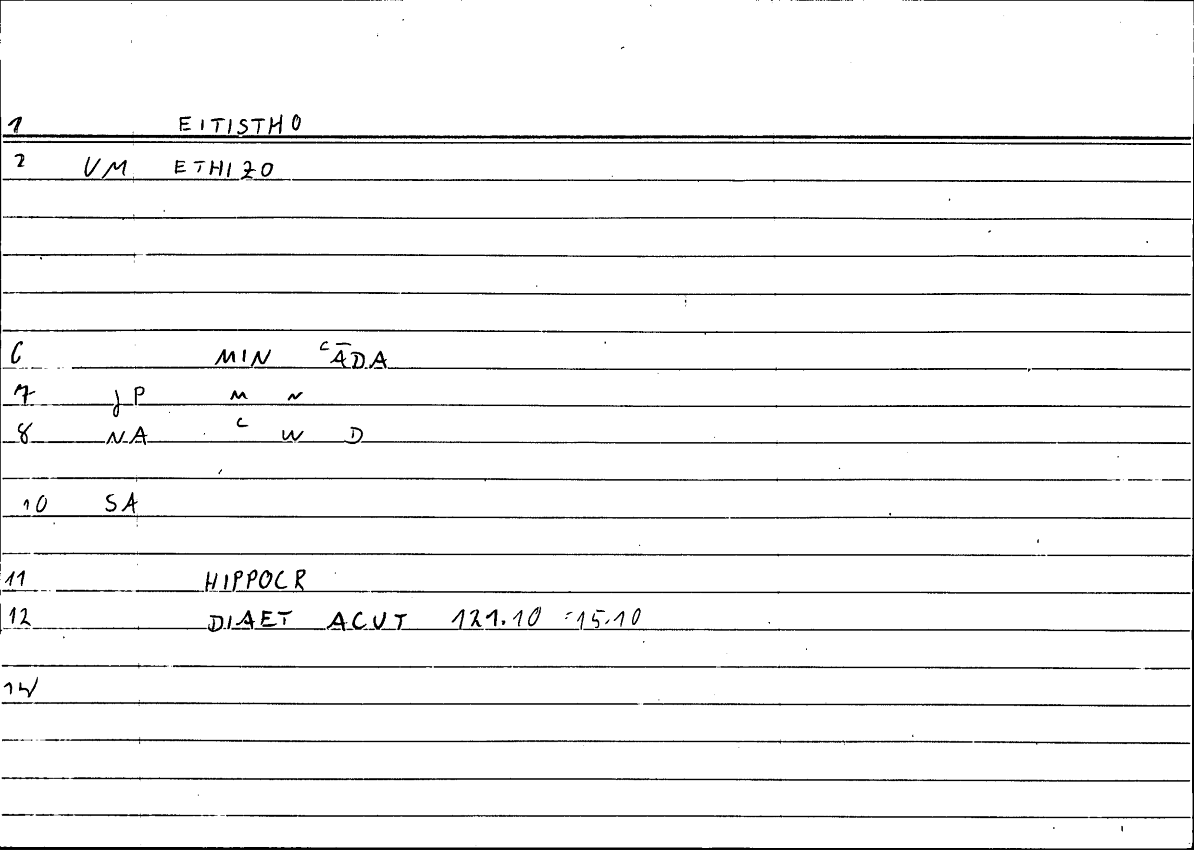 1 EITISTHO
2 VM ETHIZO
6 MIN ᶜĀDA
7 JP M N
8 NA C W D
10 SA
11 HIPPOCR
12 DIAET ACUT 121.10 =15.10
14